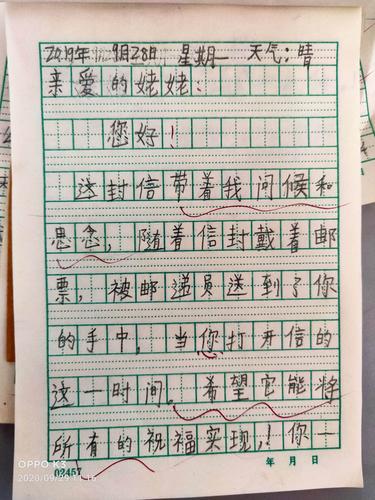 2019年 9月28日 星期一 天气:晴
亲爱的姥姥:
您好!
这封信带着我问候和
思念,随着信封戴着邮
票,被邮递员送到了你
的手中,当你打开信的
这一时间。希望它能将
所有的祝福实现,!你一
02457
年 月 日
OPPO K3
2020/09/29 11:16